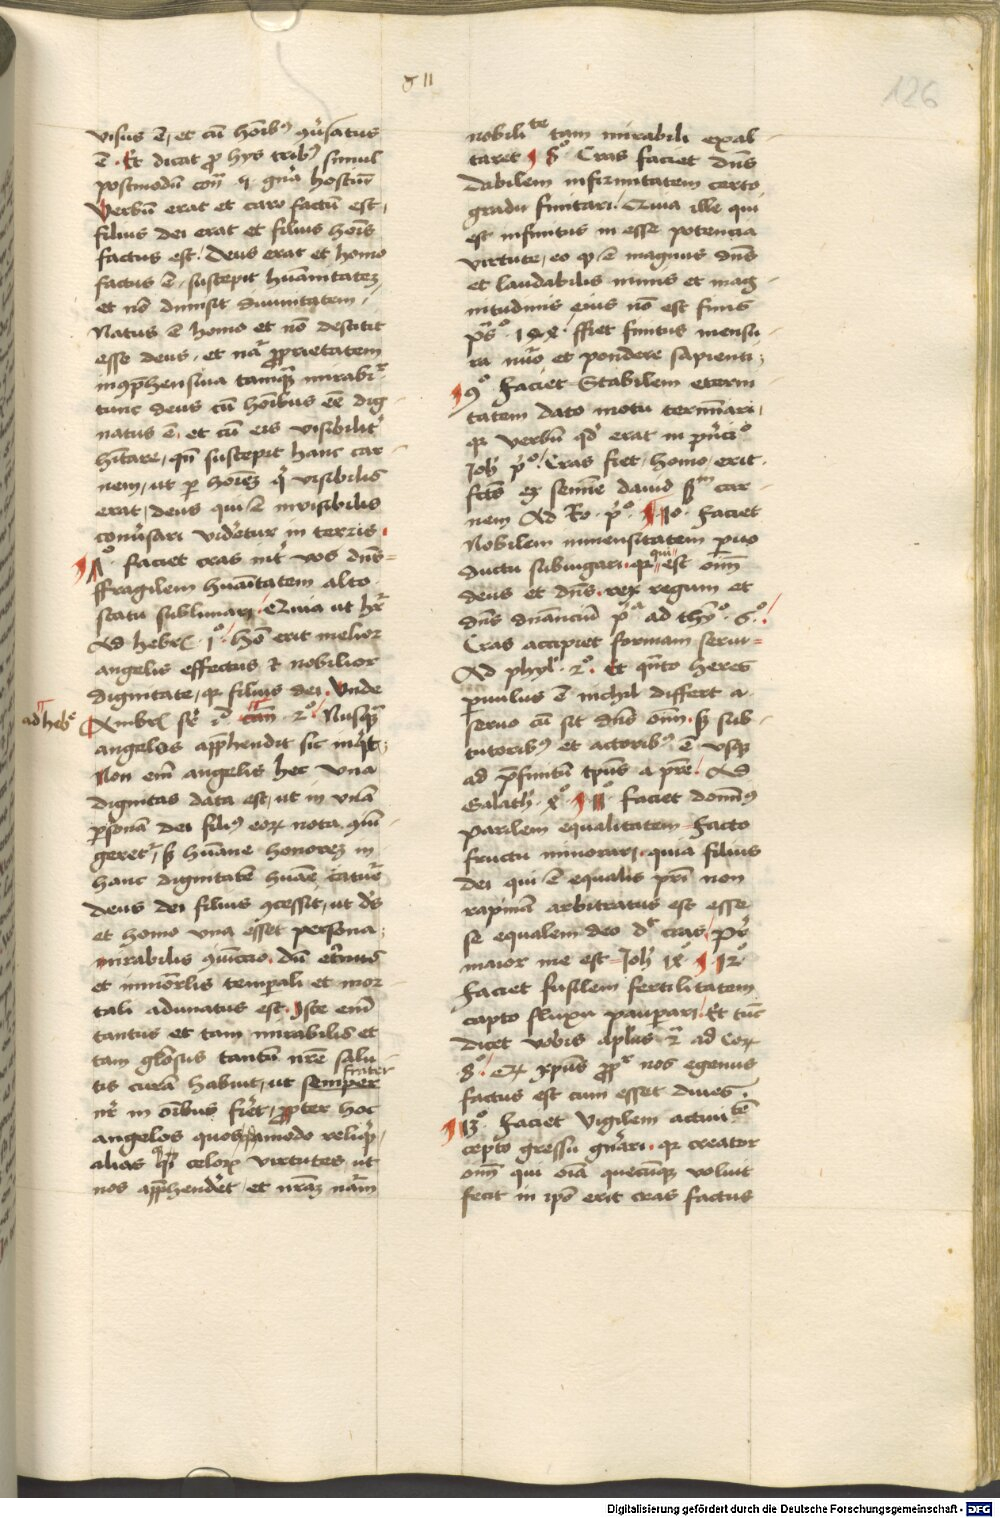 g 11
126
visus ē, et cū hoīb⁹ ꝯv̄satus
ē. Et dicat ꝓ hys trib⁹ simul
postmodū
Verbū erat et caro factū est,
filius dei erat et filius hoīs
factus est. Deus erat et homo
factus ē, suscepit huānitatez
et nō dimisit diuinitatem,
Natus ē homo et nō destitit
esse deus, et nāᵉ ꝓprietatem
inꝯp̄hensiua tamqᷓ mirabiᷓ
tunc deus cū hoībus eē dig
natus ē, et cū eis visibilit̾
hītare, qn̄ suscepit hanc car
nem, ut ꝑ hoīez qͥ visibilis
erat, deus qui ē invisibilis
conv̄sari videtur in terris.
¶ A° faciet cras int̾ vos dn̄s
ffragilem huāitatem alto
statu sublimari. Quia ut hr̄
Ad hebre. 1°. Hō erit melior
angelis effectus et nobilior
dignitate, qr filius dei. Vnde
ad heb̄e
Ambr̄ sr̄ iᵈ can 2°. Nusqᷓ
angelos app̄hendit sic inqͥt,
Non em̄ angelis hec vna
dignitas data est, ut in vnā
ꝑsonā dei fili⁹ eoꝝ nota ꝯiū
geret̾, sꝫ hūane honorez in
hanc dignitatē huāe
deus dei filius ꝯcessit, ut ds̄
et homo vna esset persona,
mirabilis ꝯiūctio. Dū et̾nus
et īmortalis temporali et mor
tali adunatus est. Iste em̄
tantus et tam mirabilis et
tam gl̄osus tantū nr̄e salu
tis curā habuit, ut semper
frater
nr̄ in oībus fiēt, ꝓpter hoc
angelos quodāmodo reliqͥt,
alias celoꝝ virtutes, ut
nos app̄henderet, et nr̄az nām
nobiliᵗᵉ tam mirabili exal
taret ¶ 8° Cras faciet dn̄s
dabilem infirmitatem certo
gradu finitari. Quia ille qui
est infinitus in esse potencia
virtute, eo qꝫ ē magnus dn̄s
et laudabilis nimis et mag
nitudinis eius nō est finis
pͣs° 144. ffiet finitus mensu
ra nūo et pondere sapienti,
¶ 9° faciet Stabilem eterni
tatem dato motu terminari,
qr verbū qd̾ erat in pn̄ci°
Joh̄ p°. Cras fiet, homo, erit
fcūs ex semine dauid sᵐ car
nem Ad Ro. p°. ¶ 10°. faciet
Nobilem inmensitatem paruo
qui
ductu subiugari. qr est oīm
deus et dn̄s. rex regum et
dn̄s dn̄anciū pᵃ ad thy̾. 6°.
Cras accipiet formam serui
Ad phyl̾ 2°. Et qn̄to heres
ꝑuulus ē nichil differt a
seruo cū sit dn̄s oīm. sꝫ sub
tutorib⁹ et actorib⁹ ē vsqꝫ
ad p̄finitū tp̄us a pr̄e. Ad
Galath. 4° ¶ 11° faciet domin⁹
parilem equalitatem facto
fructu minorari. quia filius
dei qui ē equalis pr̄i non
rapinā arbitratus est esse
se equalem deo dᶜ cras, pr̄
maior me est Joh̄ 14° ¶ 12°
faciet fusilem fertilitatem
capto fluxu pauperari. Et tūc
dicet vobis apl̄us 2ᵃ ad Coꝝ
8°. Qꝛ xp̄us ꝓpᵗ nos egenus
factus est cum esset diues.
¶ 13° faciet Vigilem actuiᵗᵉ
cepto gressu gn̄ari. qr creator
oīm qui oīa quecūqꝫ voluit
fecit in ip̄o erit cras factus
Digitalisierung gefördert durch die Deutsche Forschungsgemeinschaft - DFG